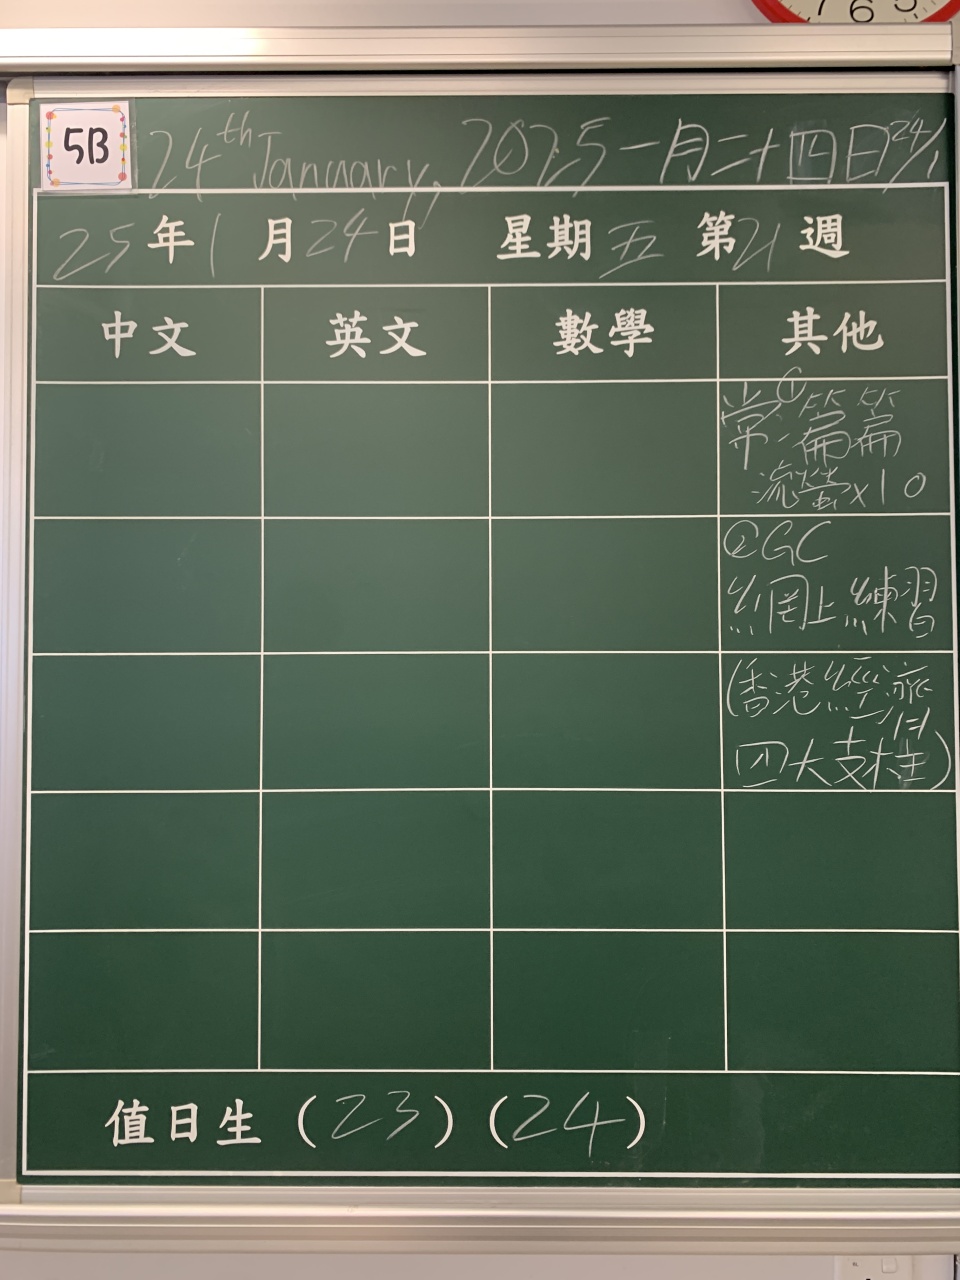 7 6 5
5B
24th January, 2025 一月二十四日 24/1
25年1月24日 星期五 第21週
中文 英文 數學 其他
常:①篇篇
流螢x10
②GC
網上練習
(香港經濟
四大支柱)
值日生 (23) (24)